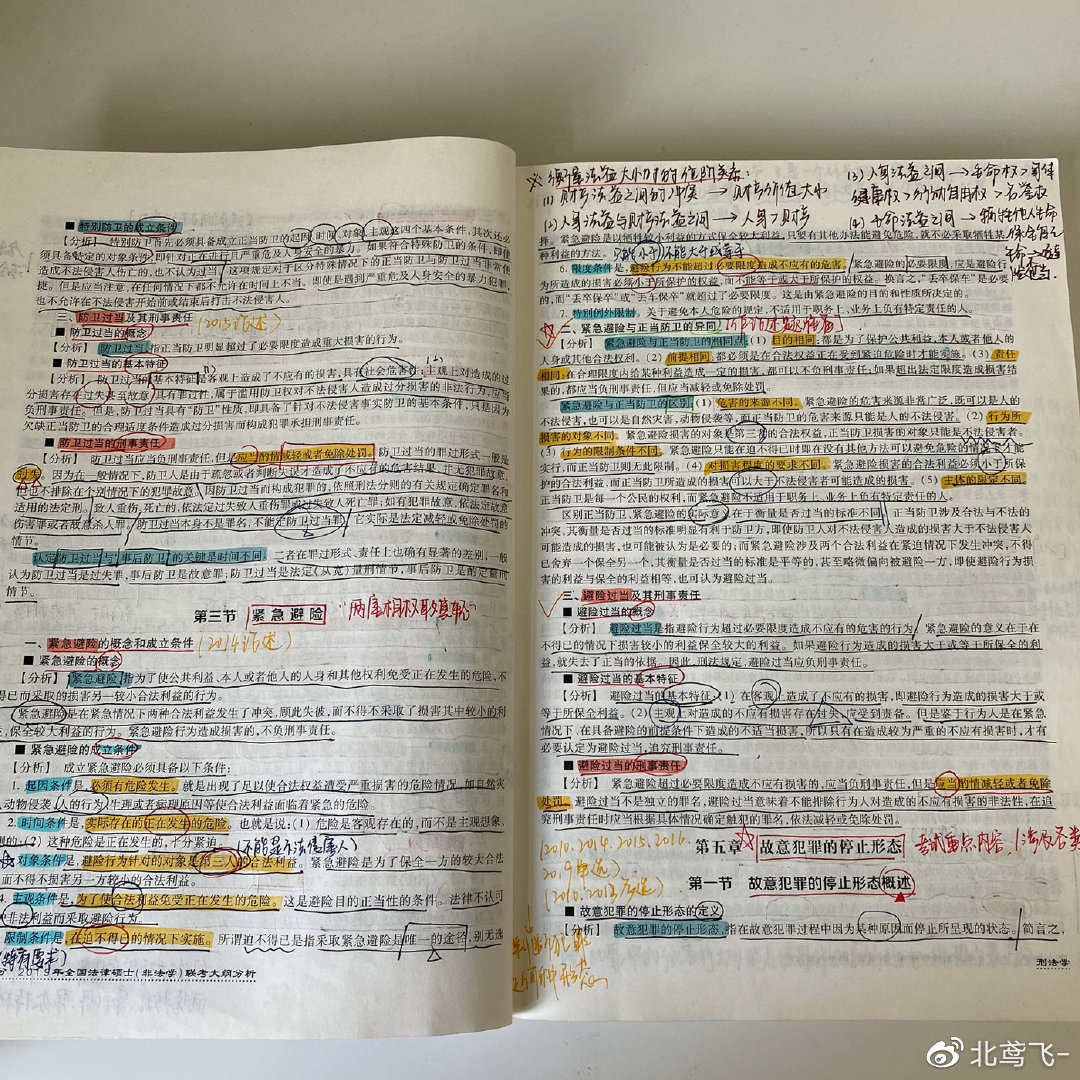 ■ 特别防卫的成立条件
【分析】 特别防卫首先必须具备成立正当防卫的起因、时间、对象、主观这四个基本条件,其次还必
须具备特定的对象条件,即针对正在进行且严重危及人身安全的暴力。如果符合特殊防卫的条件,即使
造成不法侵害人伤亡的,也不认为过当。这项规定对于区分特殊情况下的正当防卫与防卫过当非常便
捷。但是应当注意,在任何情况下都不允许在时间上不当。即使是遇到严重危及人身安全的暴力犯罪,
也不允许在不法侵害开始前或结束后打击不法侵害人。
三、防卫过当及其刑事责任 (2015论述)
■ 防卫过当的概念
【分析】 防卫过当,指正当防卫明显超过了必要限度造成重大损害的行为。
■ 防卫过当的基本特征
【分析】 防卫过当的基本特征是客观上造成了不应有的损害,具有社会危害;主观上对造成的过
分损害存在过失甚至故意,具有罪过性,属于滥用防卫权对不法侵害人造成过分损害的非法行为,应当
负刑事责任。但是,防卫过当具有“防卫”性质,即具备了针对不法侵害事实防卫的基本条件,只是因为
欠缺正当防卫的合理适度条件造成过分损害而构成犯罪承担刑事责任。
■ 防卫过当的刑事责任
【分析】 防卫过当应当负刑事责任,但是应当酌情减轻或者免除处罚。防卫过当的罪过形式一般是
过失。因为在一般情况下,防卫人是由于疏忽或者判断失误才造成了不应有的危害结果,并无犯罪故意,
但也不排除在个别情况下的犯罪故意。因防卫过当而构成犯罪的,依照刑法分则的有关规定确定罪名和
适用的法定刑。致人重伤、死亡的,依法定过失致人重伤罪或过失致人死亡罪;如有犯罪故意,依法定故意
伤害罪或者故意杀人罪。防卫过当本身不是罪名,不能定防卫过当罪。它实际是法定减轻或免除处罚的
情节。
认定防卫过当与事后防卫的关键是时间不同。二者在罪过形式、责任上也确有显著的差别,一般
认为防卫过当是过失罪,事后防卫是故意罪;防卫过当是法定(从宽)量刑情节,事后防卫是酌定量刑
情节。
第三节 紧急避险 “两害相权取其轻”
一、紧急避险的概念和成立条件 (2014论述)
■ 紧急避险的概念
【分析】 紧急避险,指为了使公共利益、本人或者他人的人身和其他权利免受正在发生的危险,不
得已而采取的损害另一较小合法利益的行为。
紧急避险是在紧急情况下两种合法利益发生了冲突,顾此失彼,而不得不采取了损害其中较小的利
,保全较大利益的行为。紧急避险行为造成损害的,不负刑事责任。
■ 紧急避险的成立条件
【分析】 成立紧急避险必须具备以下条件:
1. 起因条件是,必须有危险发生。就是出现了足以使合法权益遭受严重损害的危险情况,如自然灾
动物侵袭、人的行为、生理或者病理原因等使合法利益面临着紧急的危险。
2. 时间条件是,实际存在的正在发生的危险。也就是说:(1) 危险是客观存在的,而不是主观想象、
的;(2) 这种危险是正在发生的,十分紧迫。(不能是不法侵害人)
对象条件是,避险行为针对的对象是第三人的合法利益。紧急避险是为了保全一方的较大合法
而不得不损害另一方较小的合法利益。
4. 主观条件是,为了使合法利益免受正在发生的危险。这是避险目的正当性的条件。法律不认可
非法利益而采取避险行为。
限制条件是,在迫不得已的情况下实施。所谓迫不得已是指采取紧急避险是唯一的途径,别无选
(特有要求)
年全国法律硕士(非法学)联考大纲分析
☆ 衡量法益大小时的位阶关系:
(1) 财产法益之间的冲突 → 财产价值大小
(2) 人身法益与财产法益之间 → 人身>财产
(3) 人身法益之间 → 生命权>身体
健康权>行动自由权>名誉权
(4) 生命法益之间 → 牺牲他人生命
保全自己
生命 → 避险
过当。
择。紧急避险是以牺牲较小利益的方式保全较大利益,只要有其他办法能避免危险,就不必采取牺牲某
种利益的方法。 只能小于,不能大于或等于
6. 限度条件是,避险行为不能超过必要限度造成不应有的危害。紧急避险的必要限度,应是避险行
为所造成的损害必须小于所保护的权益,而不能等于或大于所保护的权益。换言之,“丢卒保车”是必要
的,而“丢卒保卒”或“丢车保车”就超过了必要限度。这是由紧急避险的目的和性质所决定的。
7. 特别例外限制。关于避免本人危险的规定,不适用于职务上、业务上负有特定责任的人。
二、紧急避险与正当防卫的异同
【分析】 紧急避险与正当防卫的相同点:(1) 目的相同,都是为了保护公共利益、本人或者他人的
人身或其他合法权利。(2) 前提相同,都必须是在合法权益正在受到紧迫危险时才能实施。(3) 责任
相同:在合理限度内给某种利益造成一定的损害,都可以不负刑事责任;如果超出法定限度造成损害结
果的,都应当负刑事责任,但应当减轻或免除处罚。
紧急避险与正当防卫的区别:(1) 危害的来源不同。紧急避险的危害来源非常广泛,既可以是人的
不法侵害,也可以是自然灾害、动物侵袭等,而正当防卫的危害来源只能是人的不法侵害。(2) 行为所
损害的对象不同。紧急避险损害的对象是第三者的合法权益,正当防卫损害的对象只能是不法侵害者。
(3) 行为的限制条件不同。紧急避险只能在迫不得已时即在没有其他方法可以避免危险的情况下才能
实行,而正当防卫则无此限制。(4) 对损害程度的要求不同。紧急避险损害的合法利益必须小于所保
护的合法利益,而正当防卫所造成的损害可以大于不法侵害者可能造成的损害。(5) 主体的限定不同。
正当防卫是每一个公民的权利,而紧急避险不适用于职务上、业务上负有特定责任的人。
区别正当防卫、紧急避险的实际意义在于衡量是否过当的标准不同。正当防卫涉及合法与不法的
冲突,其衡量是否过当的标准明显有利于防卫方,即使防卫人对不法侵害人造成的损害大于不法侵害人
可能造成的损害,也可能被认为是必要的;而紧急避险涉及两个合法利益在紧迫情况下发生冲突,不得
已舍弃一个保全另一个,其衡量是否过当的标准是平等的,甚至略微偏向被避险一方,即使避险行为损
害的利益与保全的利益相等,也可认为避险过当。
三、避险过当及其刑事责任
■ 避险过当的概念
【分析】 避险过当是指避险行为超过必要限度造成不应有的危害的行为。紧急避险的意义在于在
不得已的情况下损害较小的利益保全较大的利益。如果避险行为造成的损害大于或等于所保全的利
益,就失去了正当的依据。因此,刑法规定,避险过当应负刑事责任。
■ 避险过当的基本特征
【分析】 避险过当的基本特征:(1) 在客观上造成了不应有的损害,即避险行为造成的损害大于或
等于所保全利益。(2) 主观上对造成的不应有损害存在过失,应受到责备。但是鉴于行为人是在紧急
情况下,在具备避险的前提条件下造成的不适当损害,所以只有在造成较为严重的不应有损害时,才有
必要认定为避险过当,追究刑事责任。
■ 避险过当的刑事责任
【分析】 紧急避险超过必要限度造成不应有损害的,应当负刑事责任,但是应当酌情减轻或者免除
处罚。避险过当不是独立的罪名,避险过当意味着不能排除行为人对造成的不应有损害的非法性,在追
究刑事责任时应当根据具体情况确定触犯的罪名,依法减轻或免除处罚。
第五章 故意犯罪的停止形态 考试重点内容,涉及各类
(2010.2014.2015.2016.
2019单选)
第一节 故意犯罪的停止形态概述
■ 故意犯罪的停止形态的定义
【分析】 故意犯罪的停止形态,指在故意犯罪过程中因为某种原因而停止所呈现的状态。简言之,
刑法学
北鸢飞-